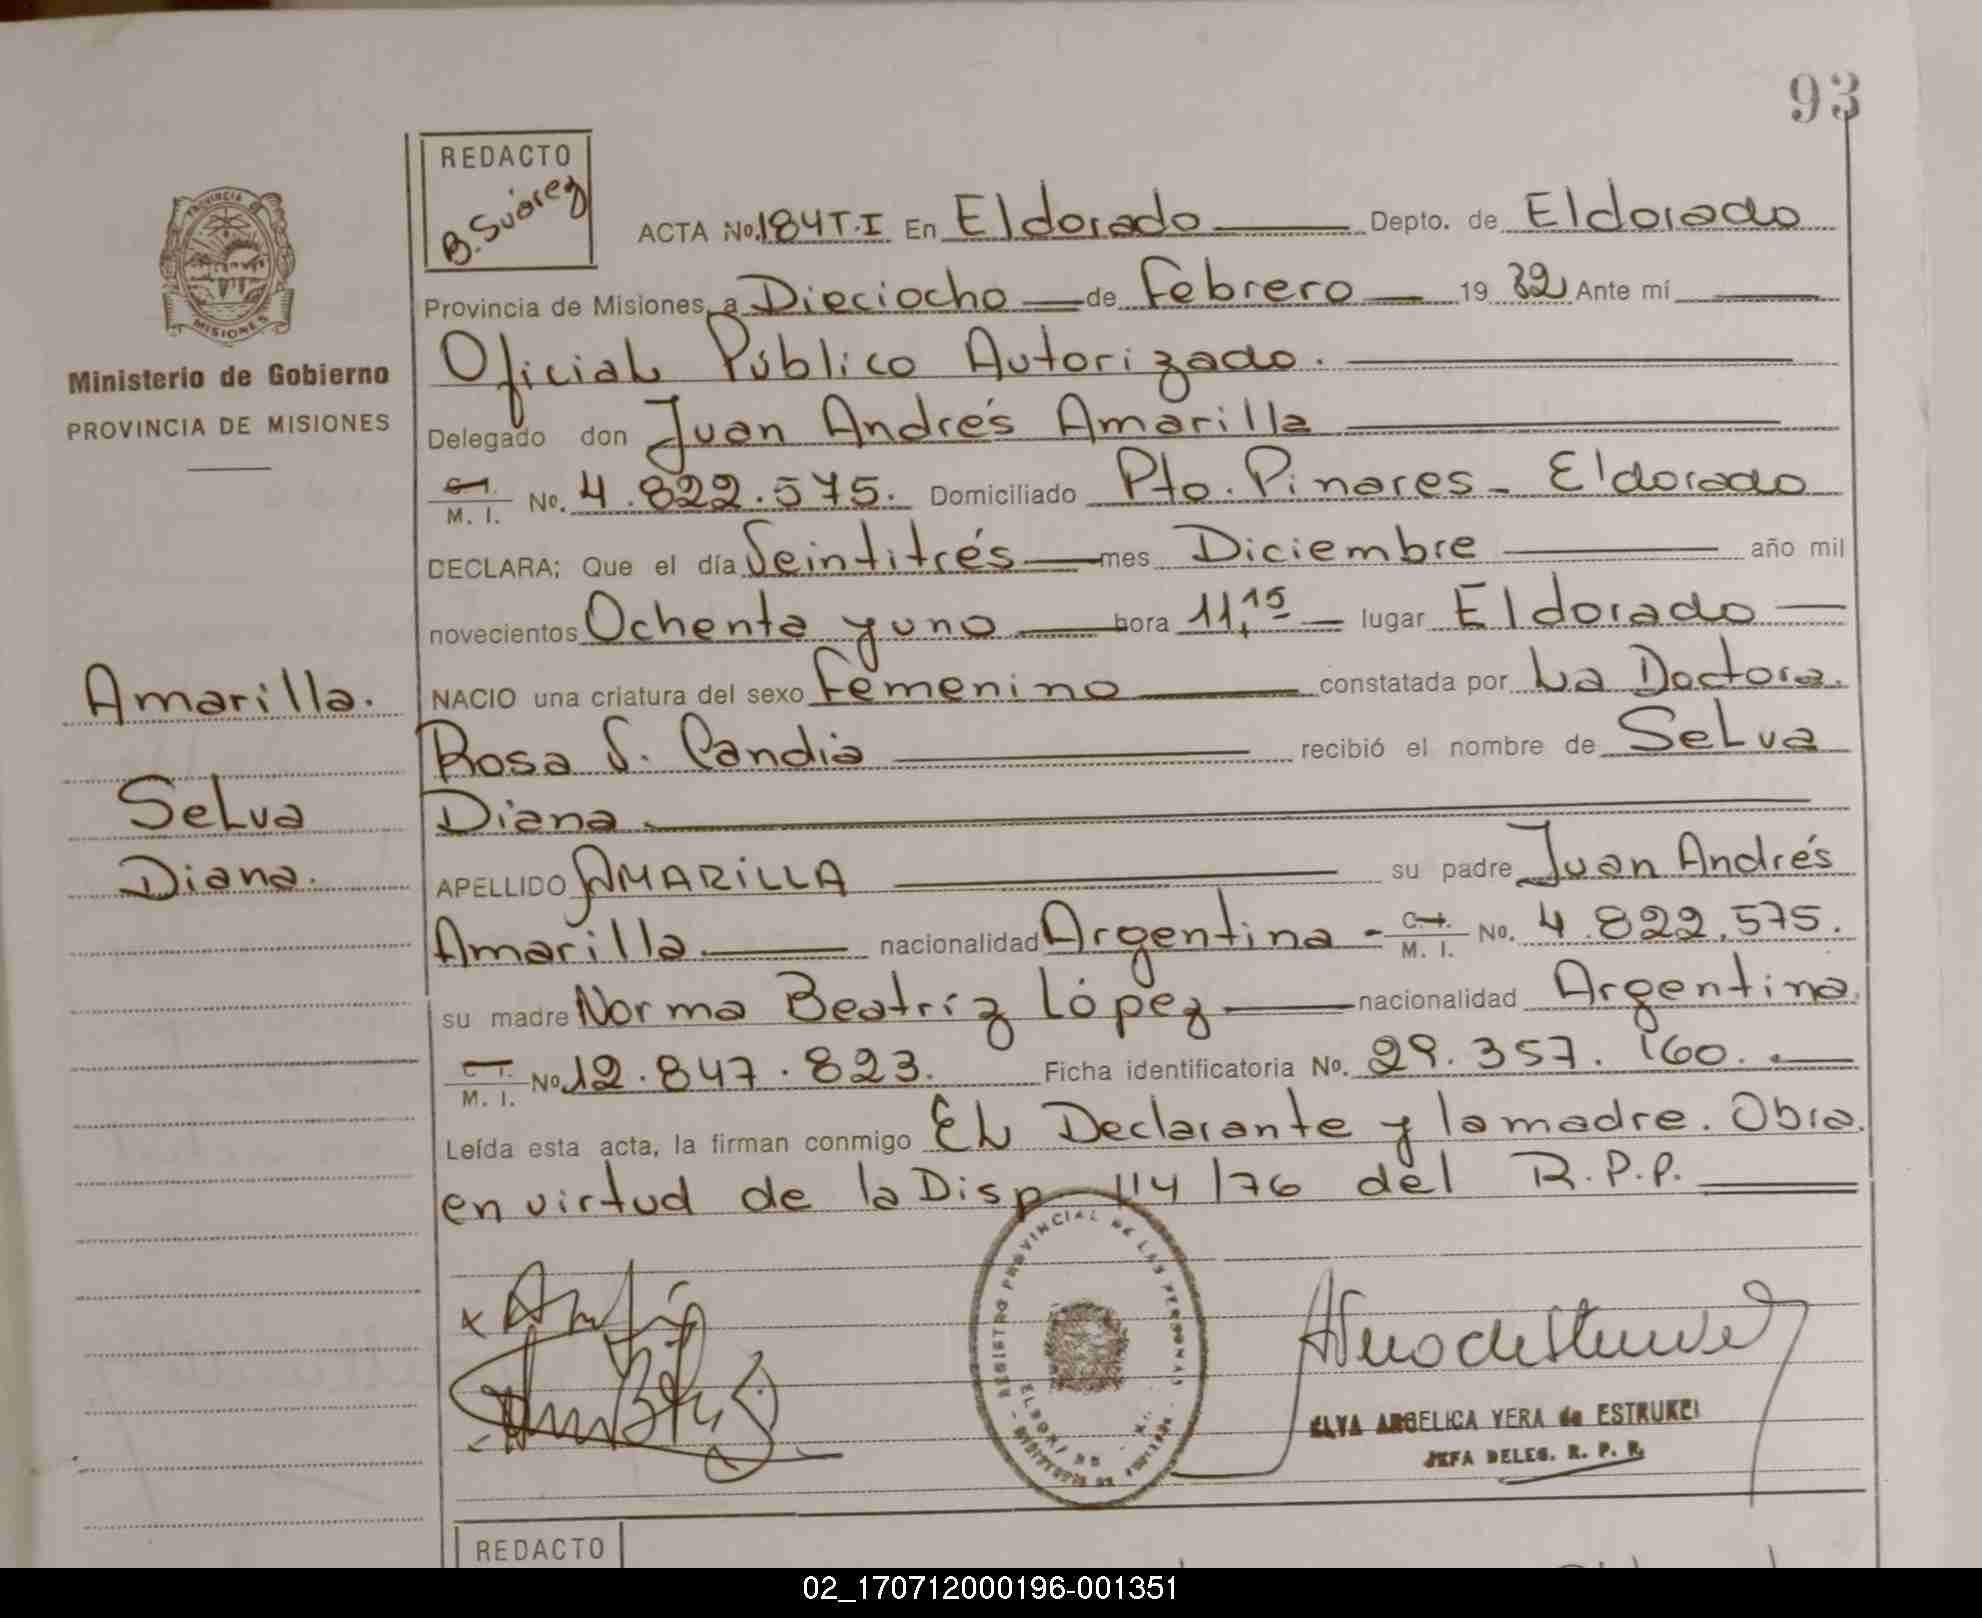 93
REDACTO
B. Suárez
ACTA No. 184T.I En Eldorado Depto. de Eldorado
Provincia de Misiones, a Dieciocho de Febrero 19 82 Ante mí
Oficial Público Autorizado.
Delegado don Juan Andrés Amarilla
C.I. M. I. No. 4.822.575. Domiciliado Pto. Pinares - Eldorado
DECLARA; Que el día Veintitrés mes Diciembre año mil
novecientos Ochenta y uno hora 11,15 lugar Eldorado
NACIO una criatura del sexo Femenino constatada por La Doctora.
Rosa S. Candia recibió el nombre de Selva
Diana
APELLIDO AMARiLLA su padre Juan Andrés
Amarilla nacionalidad Argentina - C.I. M. I. No. 4.822.575.
su madre Norma Beatríz López nacionalidad Argentina
C.I. M. I. No. 12.847.823. Ficha identificatoria No. 29.357.160.
Leída esta acta, la firman conmigo El Declarante y la madre. Obra.
en virtud de la Disp 114/76 del R.P.P.
PROVINCIA
MISIONES
Ministerio de Gobierno
PROVINCIA DE MISIONES
Amarilla.
Selva
Diana.
REGISTRO PROVINCIAL DE LAS PERSONAS
ELVA ANGELICA VERA de ESTRUKEI
JEFA DELEG. R. P. P.
REDACTO
02_170712000196-001351